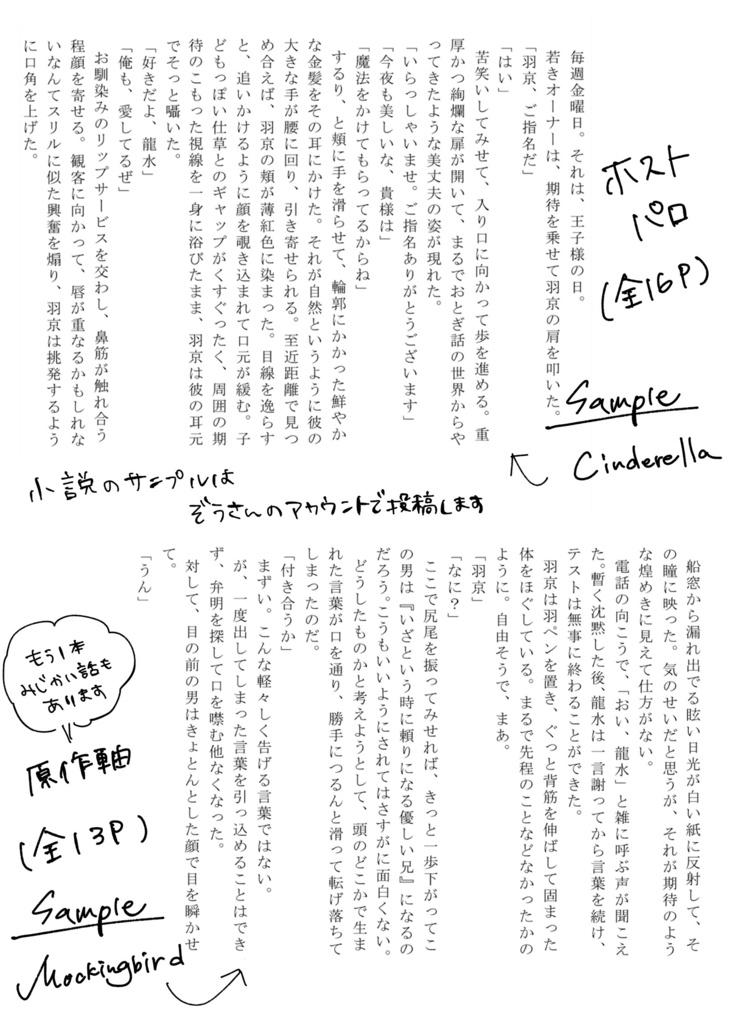 ホスト
パロ
(全16P)
Sample
Cinderella
毎週金曜日。それは、王子様の日。
若きオーナーは、期待を乗せて羽京の肩を叩いた。
「羽京、ご指名だ」
「はい」
苦笑いしてみせて、入り口に向かって歩を進める。重
厚かつ絢爛な扉が開いて、まるでおとぎ話の世界からや
ってきたような美丈夫の姿が現れた。
「いらっしゃいませ。ご指名ありがとうございます」
「今夜も美しいな、貴様は」
「魔法をかけてもらってるからね」
するり、と頬に手を滑らせて、輪郭にかかった鮮やか
な金髪をその耳にかけた。それが自然というように彼の
大きな手が腰に回り、引き寄せられる。至近距離で見つ
め合えば、羽京の頬が薄紅色に染まった。目線を逸らす
と、追いかけるように顔を覗き込まれて口元が緩む。子
どもっぽい仕草とのギャップがくすぐったく、周囲の期
待のこもった視線を一身に浴びたまま、羽京は彼の耳元
でそっと囁いた。
「好きだよ、龍水」
「俺も、愛してるぜ」
お馴染みのリップサービスを交わし、鼻筋が触れ合う
程顔を寄せる。観客に向かって、唇が重なるかもしれな
いなんてスリルに似た興奮を煽り、羽京は挑発するよう
に口角を上げた。
小説のサンプルは
ぞうさんのアカウントで投稿します
船窓から漏れ出でる眩い日光が白い紙に反射して、そ
の瞳に映った。気のせいだと思うが、それが期待のよう
な煌めきに見えて仕方がない。
電話の向こうで、「おい、龍水」と雑に呼ぶ声が聞こえ
た。暫く沈黙した後、龍水は一言謝ってから言葉を続け、
テストは無事に終わることができた。
羽京は羽ペンを置き、ぐっと背筋を伸ばして固まった
体をほぐしている。まるで先程のことなどなかったかの
ように。自由そうで、まあ。
「羽京」
「なに？」
ここで尻尾を振ってみせれば、きっと一歩下がってこ
の男は『いざという時に頼りになる優しい兄』になるの
だろう。こうもいいようにされてはさすがに面白くない。
どうしたものかと考えようとして、頭のどこかで生ま
れた言葉が口を通り、勝手につるんと滑って転げ落ちて
しまったのだ。
「付き合うか」
まずい。こんな軽々しく告げる言葉ではない。
が、一度出してしまった言葉を引っ込めることはでき
ず、弁明を探して口を噤む他なくなった。
対して、目の前の男はきょとんとした顔で目を瞬かせ
て。
「うん」
もう1本
みじかい話も
あります
原作軸
(全13P)
Sample
Mockingbird